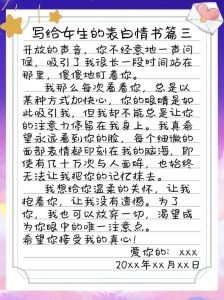 写给女生的表白情书篇三
开放的声音，你不经意地一声问
候，吸引了我很长一段时间站在
那里，傻傻地盯着你。
我那么每次看着你，总是以
某种方式加快心，你的眼睛是如
此吸引我，但我却不能总是让你
的注意力停留在我身上。我真希
望永远看到你的脸，每个细微的
面部表情都印刻在我的脑海，即
使有几十万次与人面眸，也始终
无法让我把你的记忆抹去。
我想给你温柔的关怀，让我
抱着你，让我没有遗憾。为了
你，我也可以放弃一切，渴望成
为你眼中的唯一注意点。
希望你接受我的真心！
爱你的：xxx
20xx年xx月xx日